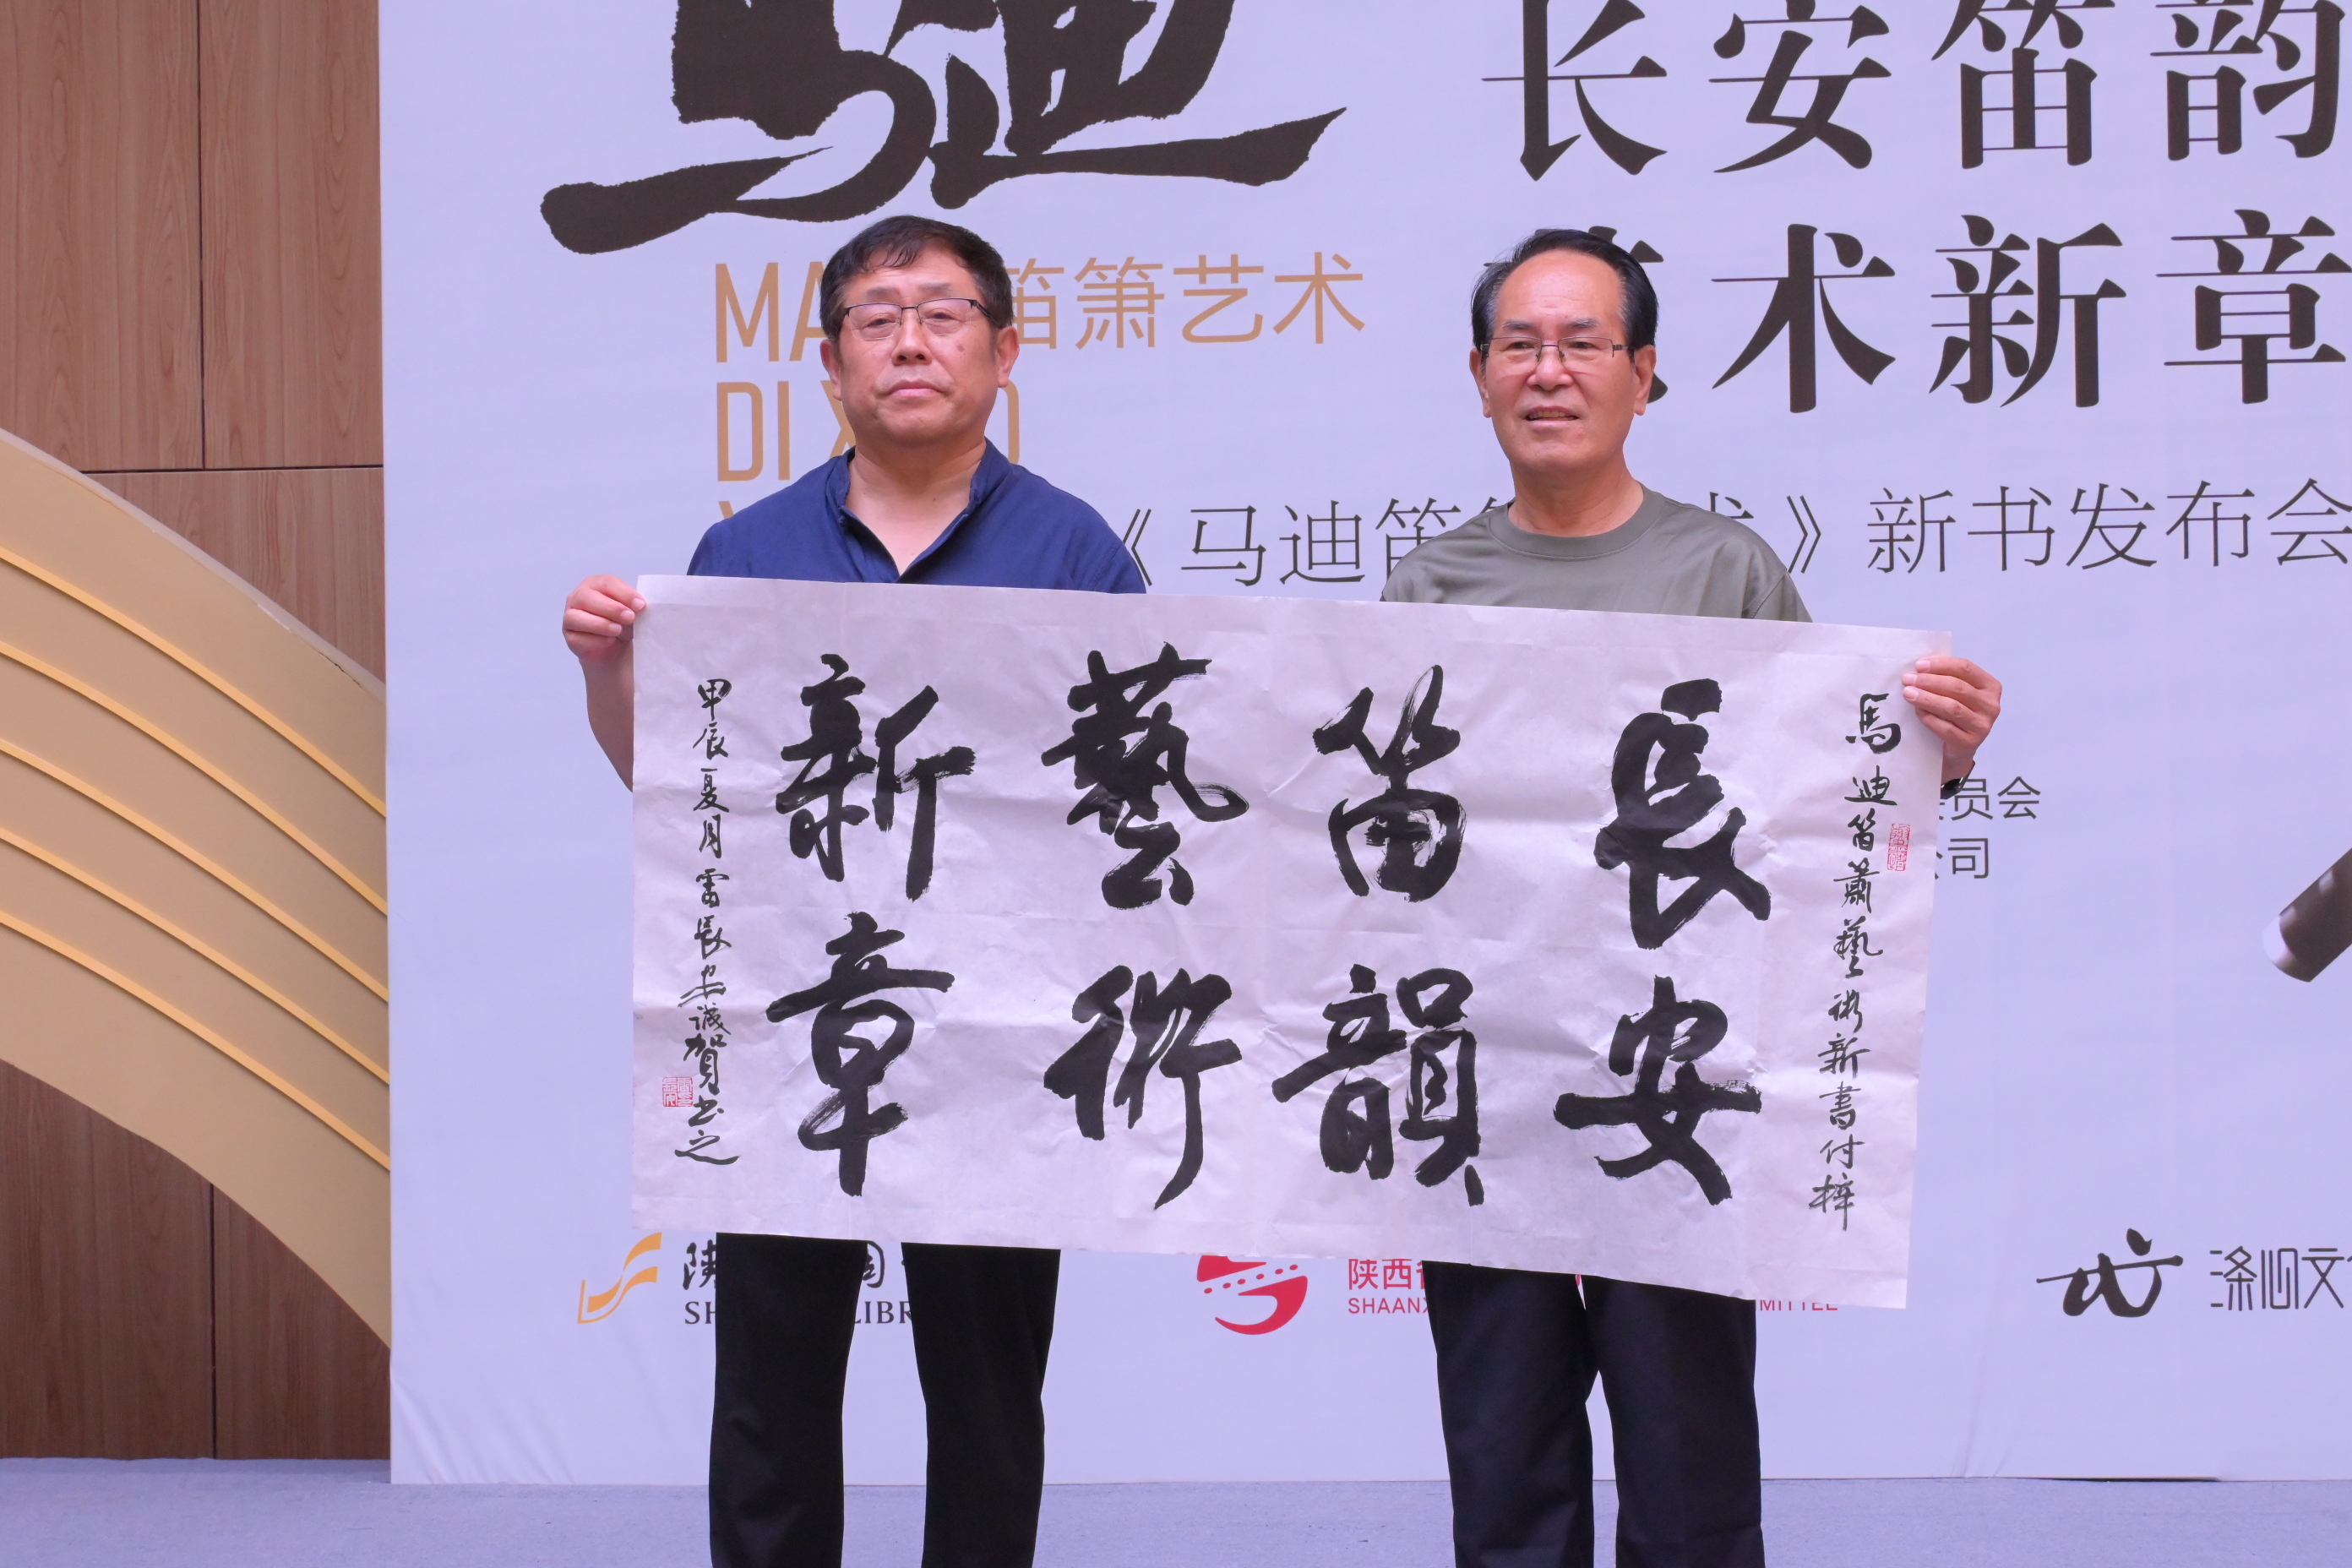 长安笛韵
术新章
MA
笛箫艺术
DI X
《马迪笛 术》新书发布会
馬迪笛簫藝術新書付梓
長安
笛韻
藝術
新章
甲辰夏月雷長安誠賀書之
员会
公司
陕
图
SH LIBR
陕西省
SHAANX MITTEE
涤心文